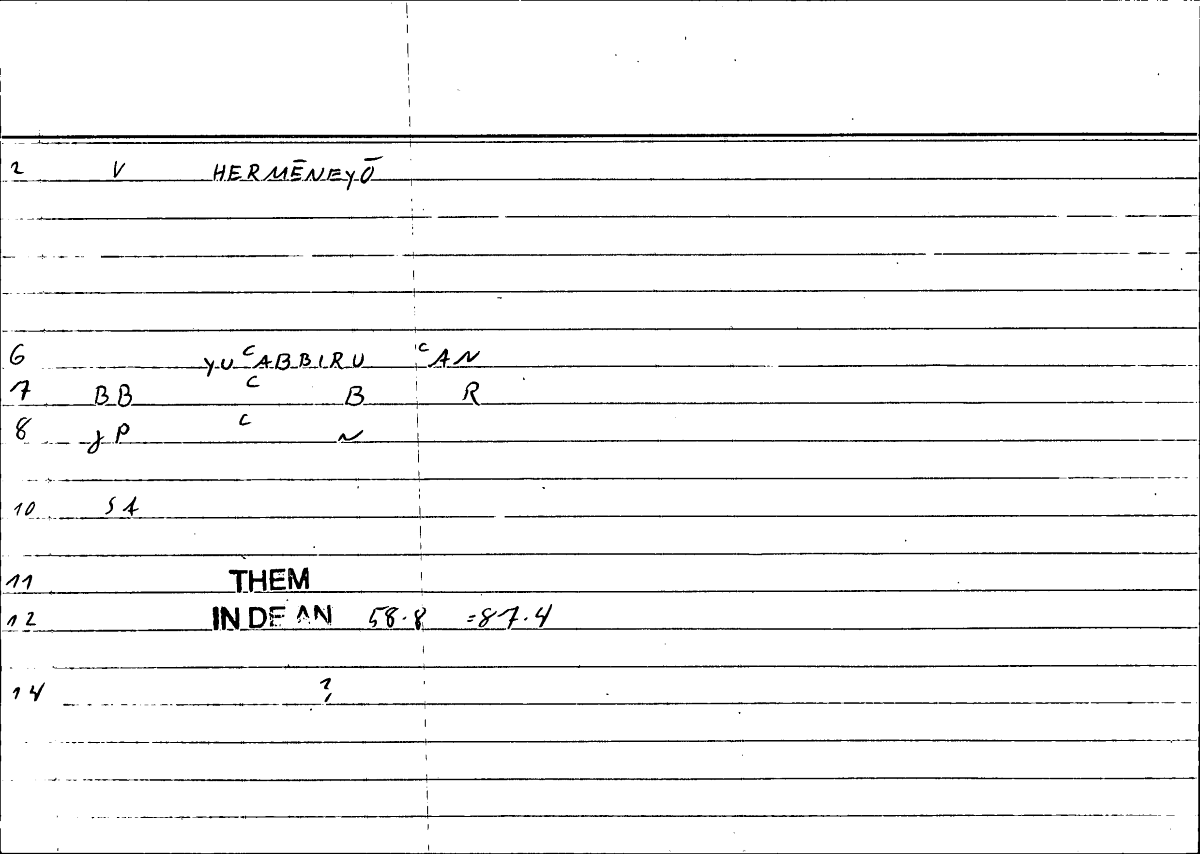 2 V HERMĒNEYŌ
6 YUᶜABBIRU ᶜAN
7 BB ᶜ B R
8 JP ᶜ N
10 SA
11 THEM
12 IN DE AN 58.8 =87.4
14 ?